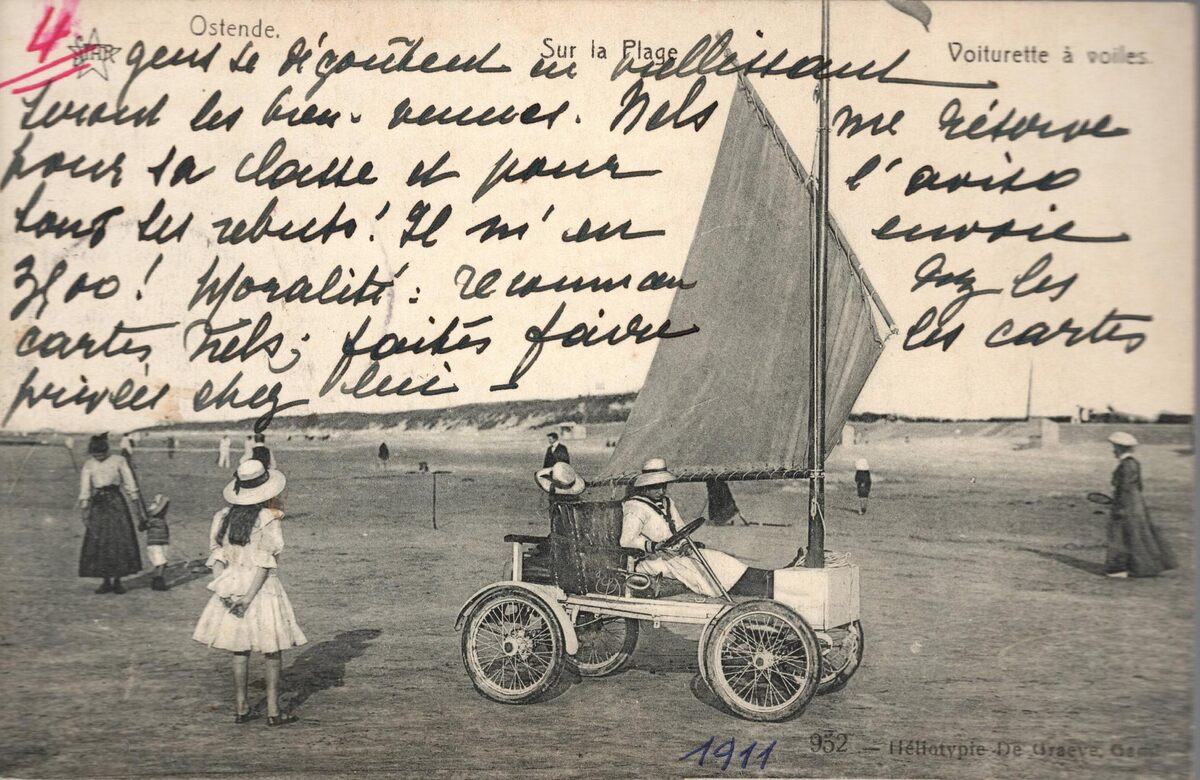 4
STAR
Ostende.
Sur la Plage
Voiturette à voiles.
gens se dégoûtent en vieillissant
seront les bien-venues. Nels me réserve
pour sa classe et pour l'aviso
tous ses rebuts! Il m'en envoie
3500! Moralité: recomman dez les
cartes Nels; faites faire les cartes
privées chez lui –
1911
952 – Héliotypie De Graeve, Gand